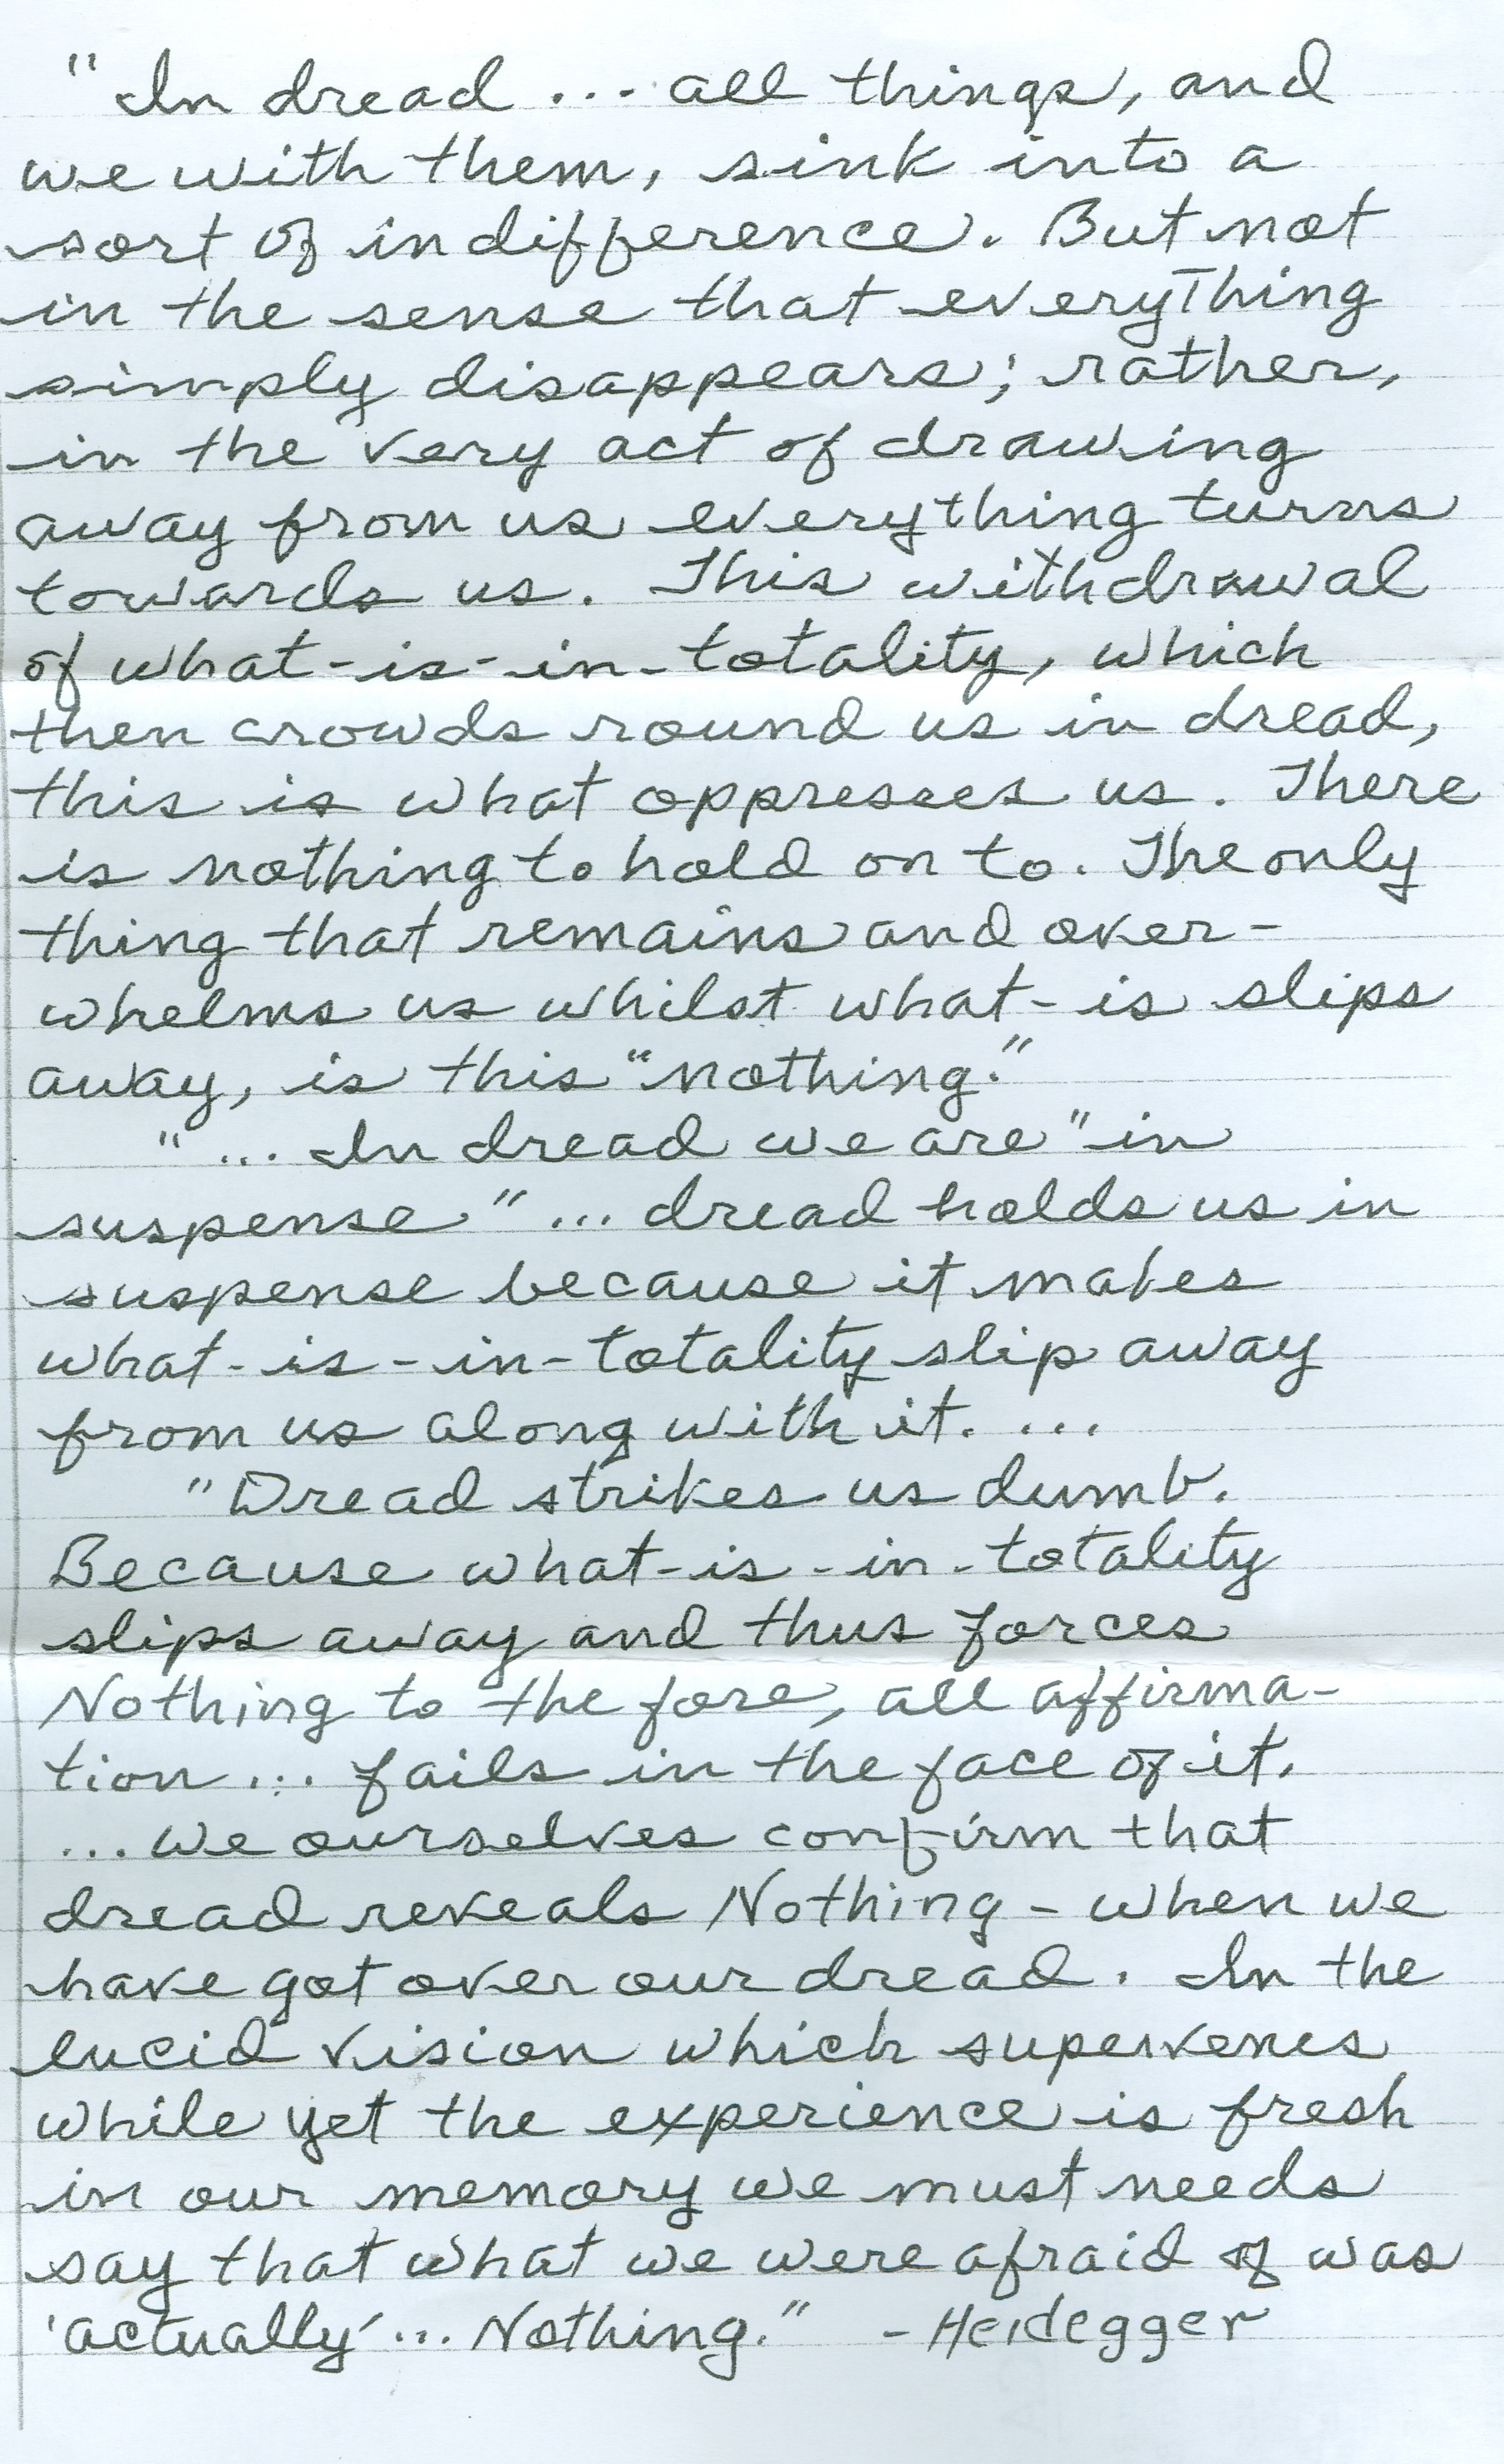 "In dread ... all things, and
we with them, sink into a
sort of indifference. But not
in the sense that everything
simply disappears; rather,
in the very act of drawing
away from us everything turns
towards us. This withdrawal
of what-is-in-totality, which
then crowds round us in dread,
this is what oppresses us. There
is nothing to hold on to. The only
thing that remains and over-
whelms us whilst what-is slips
away, is this "nothing."
"... In dread we are "in
suspense" ... dread holds us in
suspense because it makes
what-is-in-totality slip away
from us along with it. ...
"Dread strikes us dumb.
Because what-is-in-totality
slips away and thus forces
Nothing to the fore, all affirma-
tion ... fails in the face of it.
... we ourselves confirm that
dread reveals Nothing - when we
have got over our dread. In the
lucid vision which supervenes
while yet the experience is fresh
in our memory we must needs
say that what we were afraid of was
'actually' ... Nothing." - Heidegger